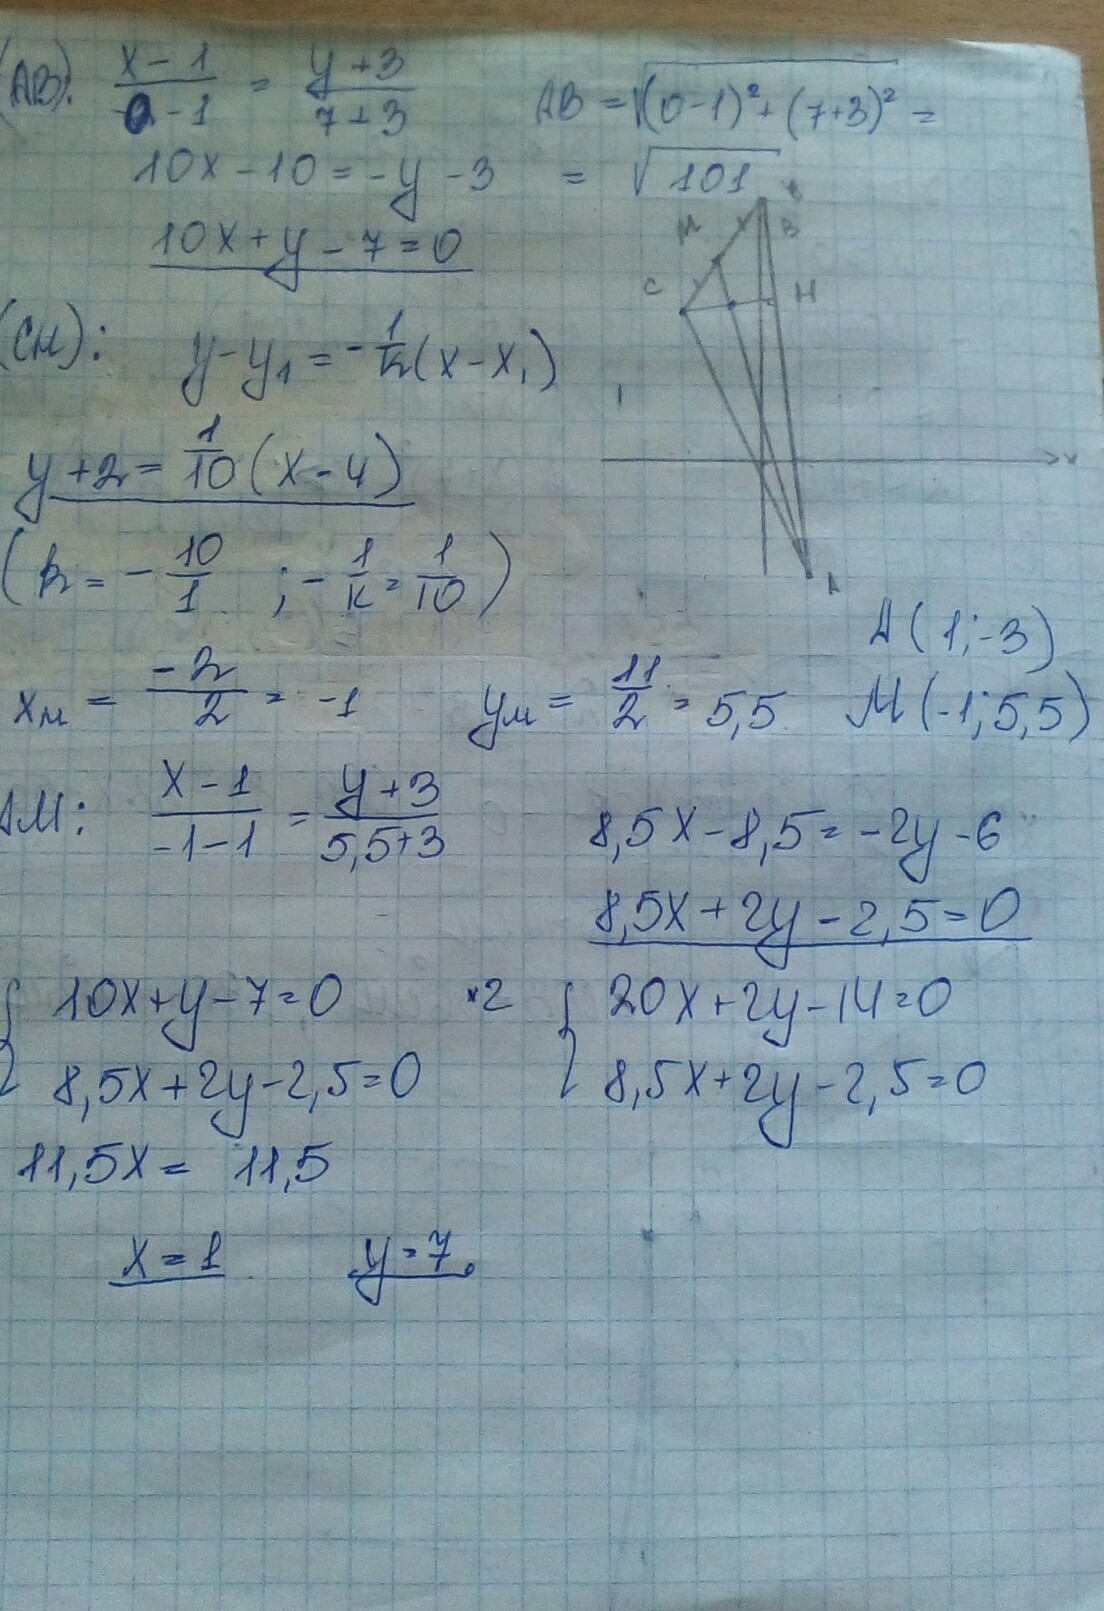 (AB): (x-1)/(0-1) = (y+3)/(7+3)
AB = √((0-1)² + (7+3)²) =
10x-10 = -y-3
= √101
10x+y-7=0
B
M
B
C
H
(CH): y-y₁ = -1/k(x-x₁)
y+2 = 1/10(x-4)
x
(k = -10/1 ; -1/k = 1/10)
A
A(1;-3)
xм = -2/2 = -1 yм = 11/2 = 5,5 M(-1;5,5)
AM: (x-1)/(-1-1) = (y+3)/(5,5+3)
8,5x-8,5 = -2y-6
8,5x+2y-2,5=0
{ 10x+y-7=0 ×2 { 20x+2y-14=0
8,5x+2y-2,5=0 8,5x+2y-2,5=0
11,5x = 11,5
x=1 y=7.